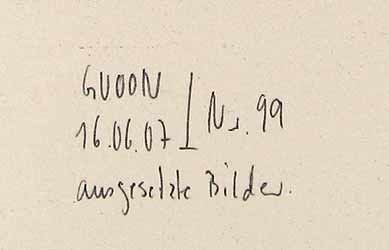 GUOON
16.06.07 | Nr. 99
ausgesetzte Bilder.